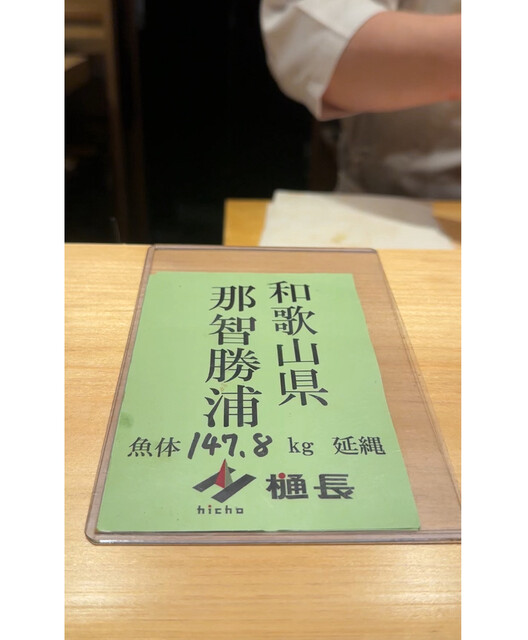 和歌山県
那智勝浦
魚体 147.8 kg 延縄
hicho 樋長